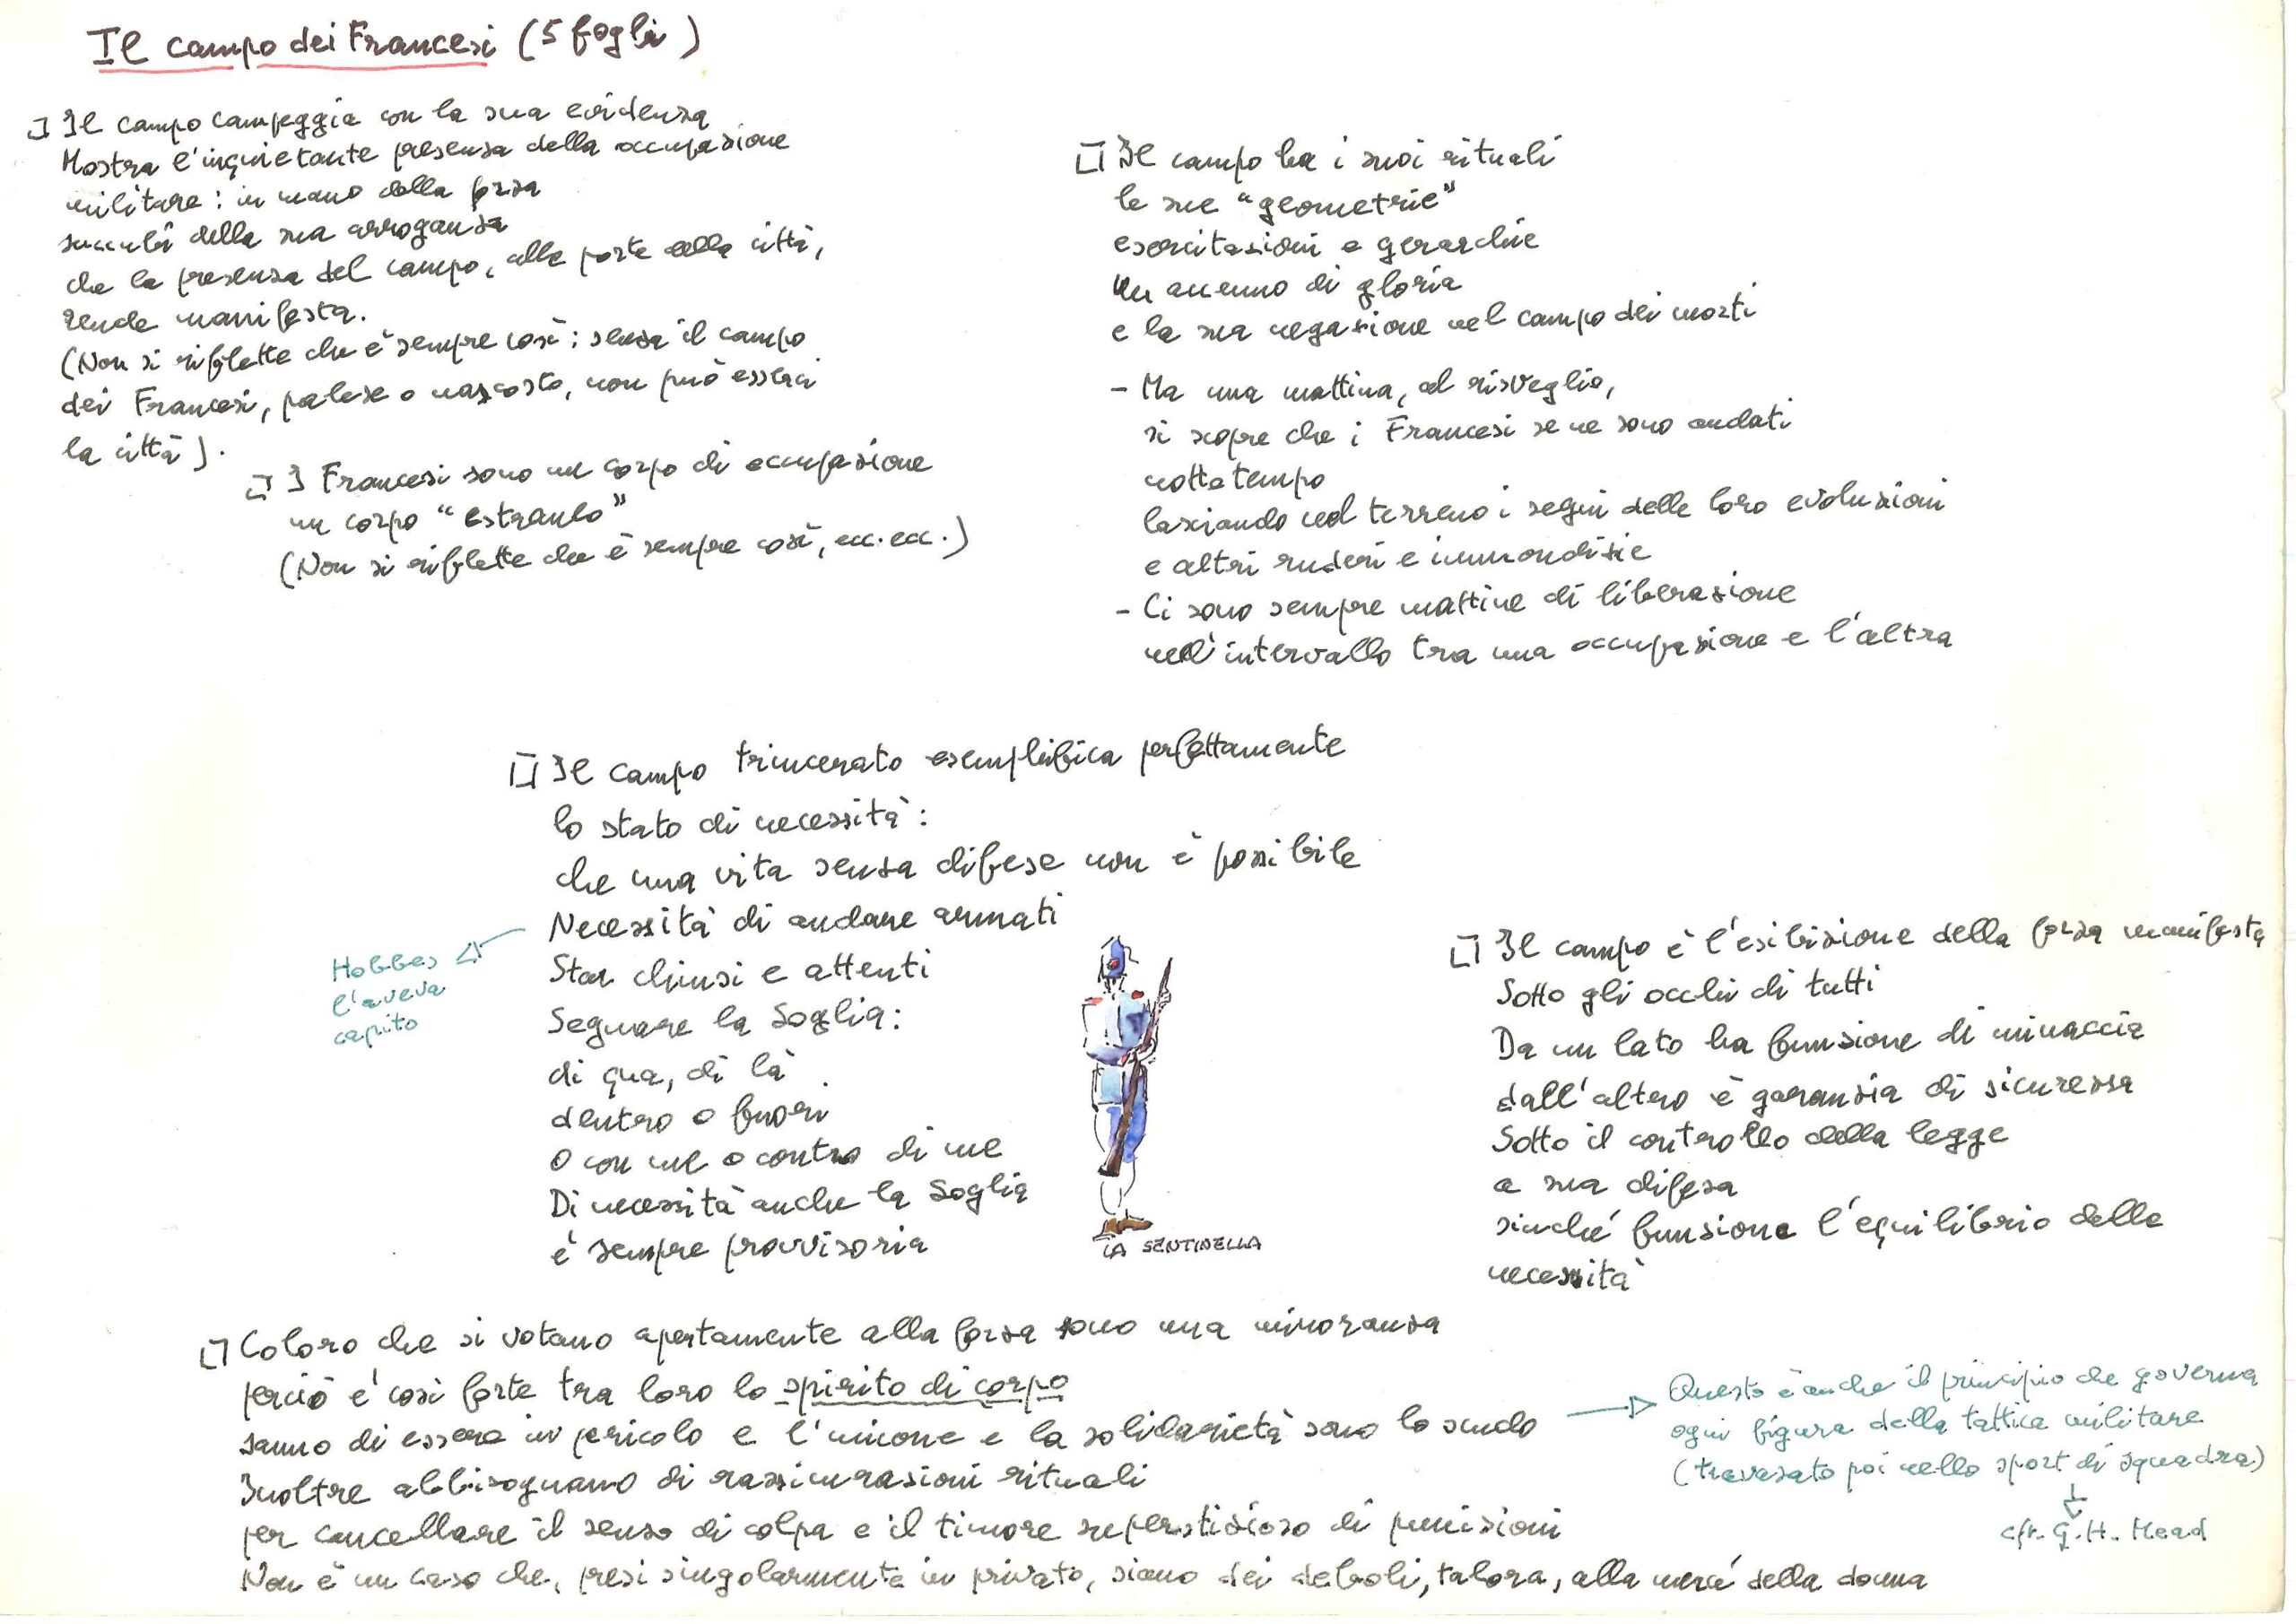 Il campo dei Francesi (5 fogli)
Il campo campeggia con la sua evidenza
Mostra l'inquietante presenza della occupazione
militare: in mano della forza
succubi della sua arroganza
che la presenza del campo, alle porte della città,
rende manifesta.
(Non si riflette che è sempre così; senza il campo
dei Francesi, palese o nascosto, non può esserci
la città).
I Francesi sono un corpo di occupazione
un corpo "estraneo"
(Non si riflette che è sempre così, ecc. ecc.)
Il campo ha i suoi rituali
le sue "geometrie"
esercitazioni e gerarchie
Un accenno di gloria
e la sua negazione nel campo dei morti
- Ma una mattina, al risveglio,
si scopre che i Francesi se ne sono andati
nottetempo
lasciando nel terreno i segni delle loro evoluzioni
e altri ruderi e immondizie
- Ci sono sempre mattine di liberazione
nell'intervallo tra una occupazione e l'altra
Il campo trincerato esemplifica perfettamente
lo stato di necessità:
che una vita senza difese non è possibile
Necessità di andare armati
Star chiusi e attenti
Segnare la Soglia:
di qua, di là
dentro o fuori
O con me o contro di me
Di necessità anche la Soglia
è sempre provvisoria
Hobbes
l'aveva
capito
LA SENTINELLA
Il campo è l'esibizione della forza manifesta
Sotto gli occhi di tutti
Da un lato ha funzione di minaccia
dall'altro è garanzia di sicurezza
Sotto il controllo della legge
a sua difesa
sinché funziona l'equilibrio delle
necessità
Coloro che si votano apertamente alla forza sono una minoranza
perciò è così forte tra loro lo spirito di corpo
sanno di essere in pericolo e l'unione e la solidarietà sono lo scudo
Inoltre abbisognano di rassicurazioni rituali
per cancellare il senso di colpa e il timore superstizioso di punizioni
Non è un caso che, presi singolarmente in privato, siano dei deboli, talora, alla mercé della donna
Questo è anche il principio che governa
ogni figura della tattica militare
(travasato poi nello sport di squadra)
cfr. G.H. Mead